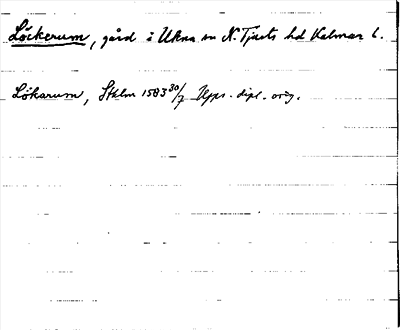 Löckerum, gård i Ukna sn N. Tjusts hd Kalmar l.
Lökarum, Sthlm 1583 30/7 Upps. dipl. orig.